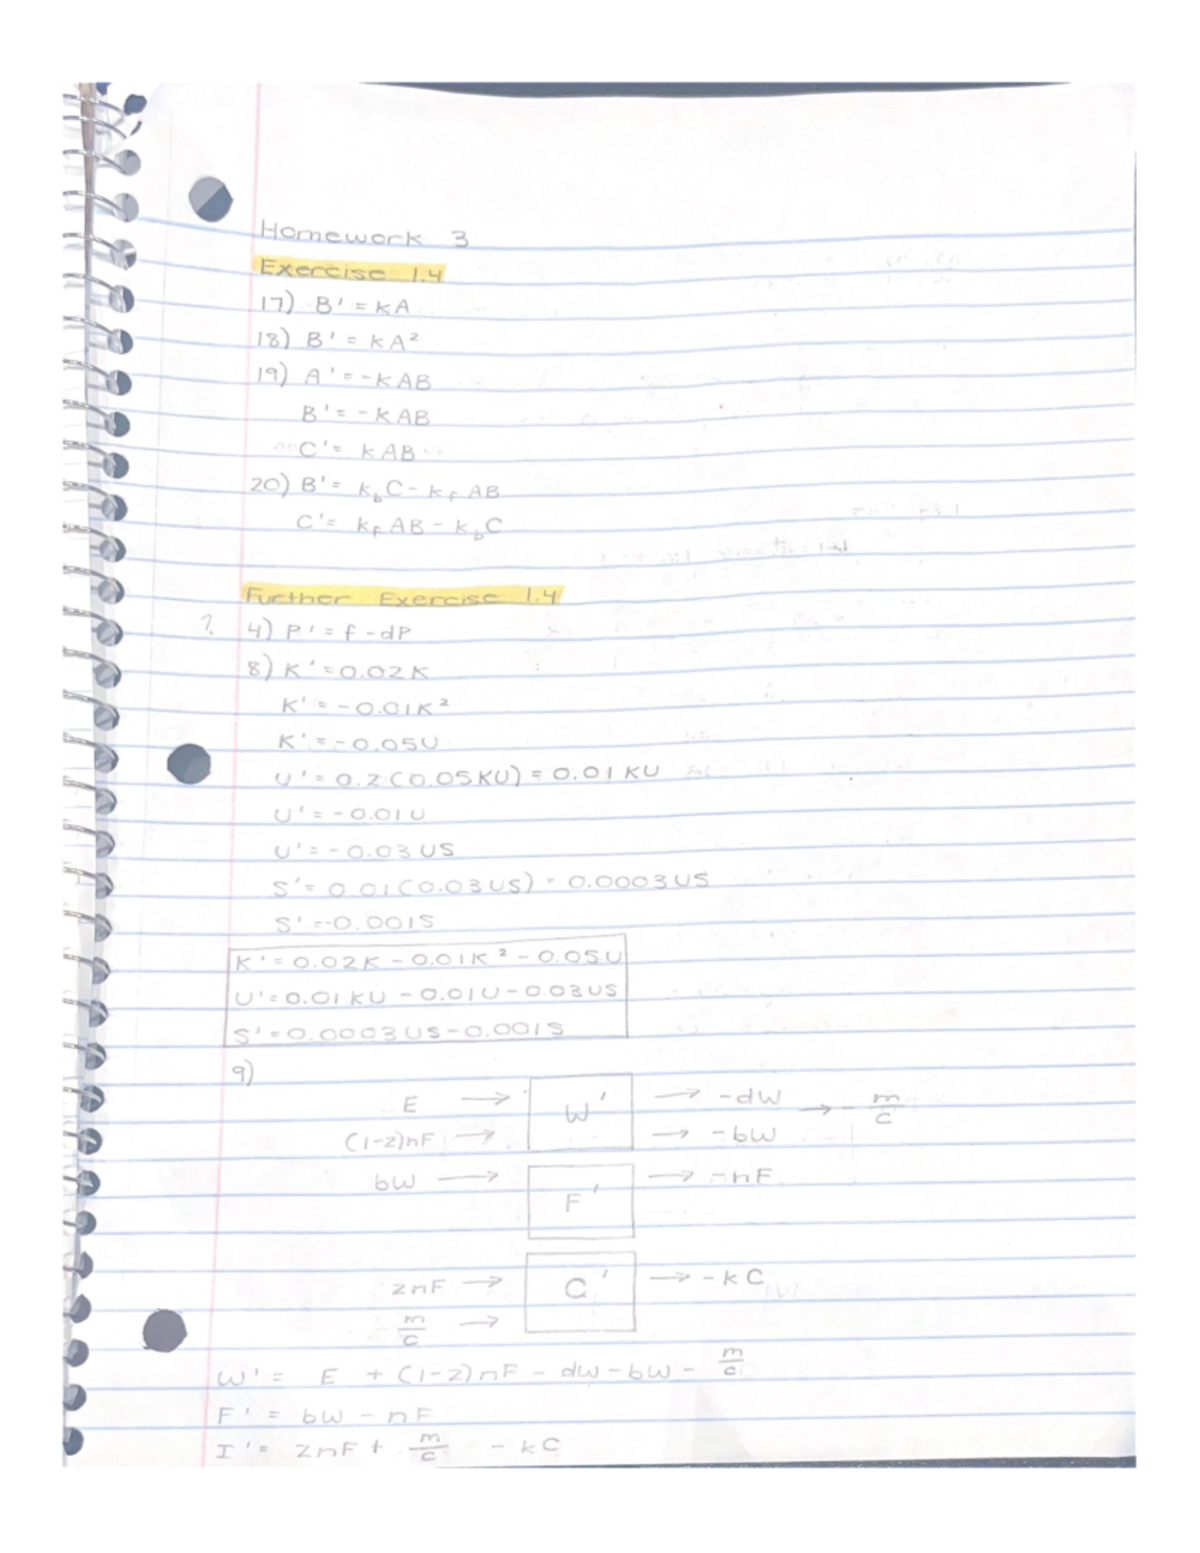 Homework 3
Exercise 1.4
17) B' = kA
18) B' = kA²
19) A' = -kAB
B' = -kAB
C' = kAB
20) B' = k_b C - k_f AB
C' = k_f AB - k_b C
Further Exercise 1.4
?. 4) P' = f - dP
8) K' = 0.02K
K' = -0.01K²
K' = -0.05U
U' = 0.2(0.05KU) = 0.01KU
U' = -0.01U
U' = -0.03US
S' = 0.01(0.03US) = 0.0003US
S' = -0.001S
K' = 0.02K - 0.01K² - 0.05U
U' = 0.01KU - 0.01U - 0.03US
S' = 0.0003US - 0.001S
9)
E → W' → -dW → - m/c
(1-z)nF → → -bW
bW → F' → -nF
znF → C' → -kC
m/c →
W' = E + (1-z)nF - dW - bW - m/c
F' = bW - nF
I' = znF + m/c - kC